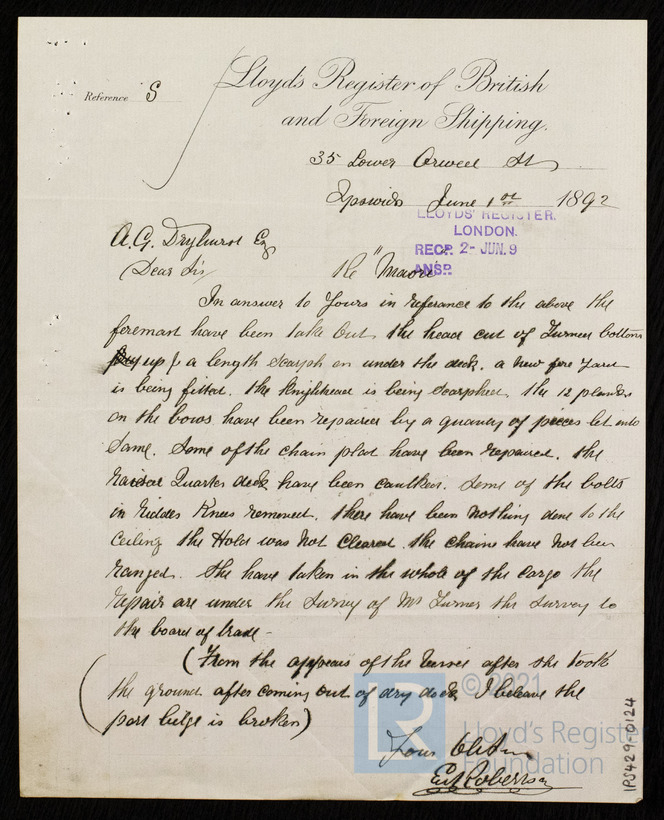 Lloyd's Register of British
and Foreign Shipping.
Reference S
35 Lower Orwell St
Ipswich June 1st 1892
LLOYDS' REGISTER.
LONDON.
RECP. 2- JUN. 9
ANSP.
A.G. Dryhurst Esq
Dear Sir
The "Maori"
In answer to yours in referance to the above the
foremast have been take out, the head cut of turned bottom
up & a length scarph on under the deck. a new fore yard
is being fitted. the Knighthead is being scarphed, the 12 planks
on the bows have been repaired by a quanty of pieces let into
same. Some of the chain plat have been repaired. the
raised Quarter deck have been caulked. Some of the bolts
in Knees removed. there have been nothing done to the
Ceiling the Hold was not cleared. the chains have not been
ranged. She have taken in the whole of the cargo the
repairs are under the Survey of Mr Turner the Survey to
the board of trade -
(From the appears of the vessel after she took
the ground after coming out of dry dock I beleave the
port bilge is broken)
Yours
Roberts
© 2021
LR
Lloyd's Register
Foundation
IPS429-0124